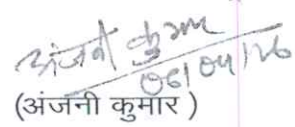 अंजनी कुमार
06/04/26
(अंजनी कुमार )